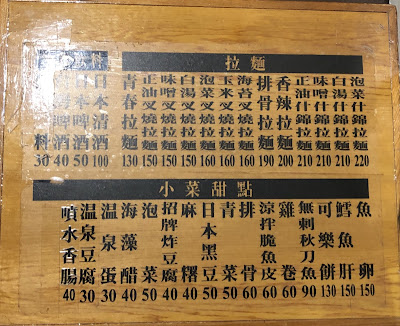 料
料 30
啤酒 40
日本啤酒 50
日本清酒 100
拉麵
青春拉麵 130
正油叉燒拉麵 150
味噌叉燒拉麵 150
白湯叉燒拉麵 150
泡菜叉燒拉麵 160
玉米叉燒拉麵 160
海苔叉燒拉麵 160
排骨拉麵 190
香辣拉麵 200
正油什錦拉麵 210
味噌什錦拉麵 210
白湯什錦拉麵 210
泡菜什錦拉麵 220
小菜甜點
噴水香腸 40
温泉豆腐 30
温泉蛋 30
海藻醋 40
泡菜 50
招牌炸豆腐 40
麻糬 40
日本黑豆 50
青菜 50
排骨 60
涼拌脆魚皮 60
雞卷 60
無刺秋刀魚 90
可樂餅 130
鱈魚肝 150
魚卵 150